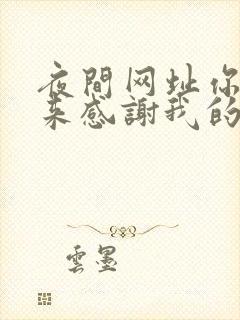 夜間网址你
来感謝我的
雲墨